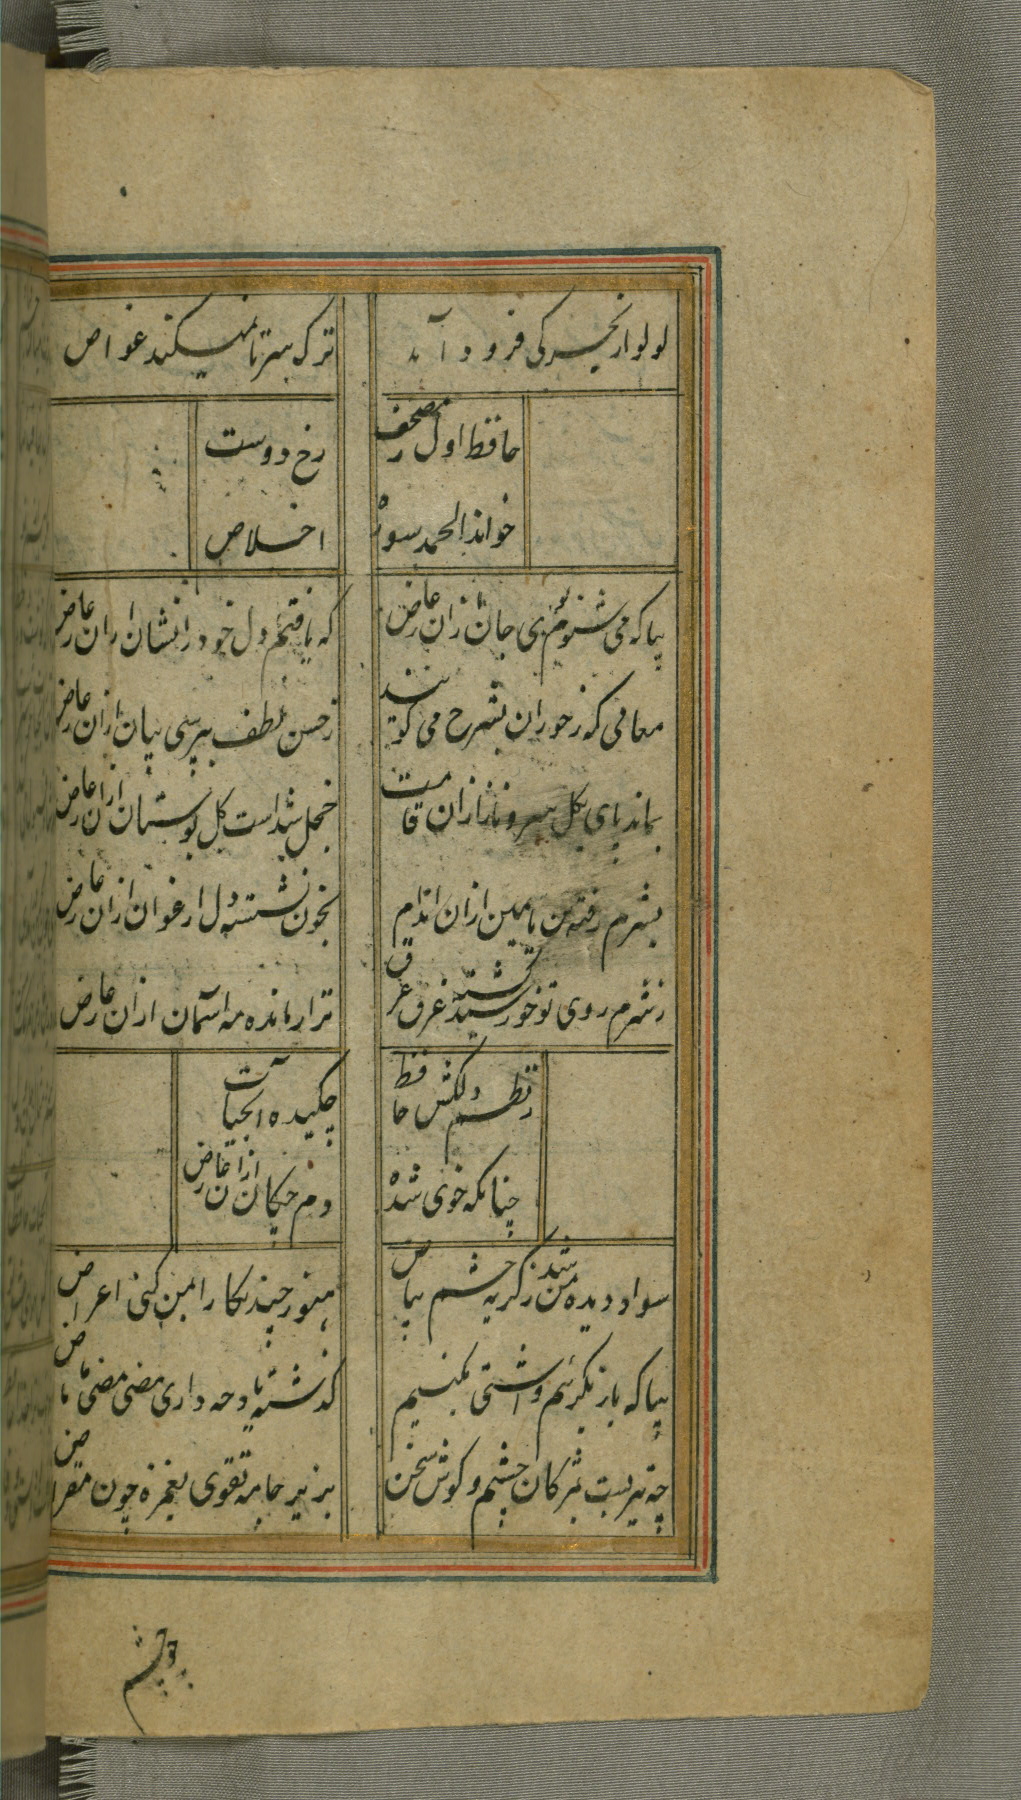 لولو از بحر کی فرود آید
ترک سر تا نمیکند غواص
حافظ اول ز مصحف
رخ دوست
خواند الحمد سورهٔ
اخلاص
بیا که می شنوم بوی جان ازان عارض
که یافتم دل خود را نشان ازان عارض
معانی که ز حوران بشرح می گویند
ز حسن لطف بپرسی بیان ازان عارض
بماند پای بکل سرو ناز ازان قامت
خجل شداست کل بوستان ازان عارض
بشرم رفته تن یاسمین ازان اندام
بخون نشسته دل ارغوان ازان عارض
ز شرم روی تو خورشید کشته غرق عرق
نزار مانده مه آسمان ازان عارض
ز نظم دلکش حافظ
چکیده آب حیات
چنانکه خوی شده
دم چکان ازان عارض
سواد دیده من شد ز کریه چشم بیاض
هنوز چند نکارا بمن کنی اعراض
بیا که باز نکردیم و آشتی بکنیم
کذشته یاد چه داری مضی مضی ماماض
چه تیر بست بمژکان چشم و کوش سخن
بزیر جامه تقوی بغمزه چون مقراض
چو چشم